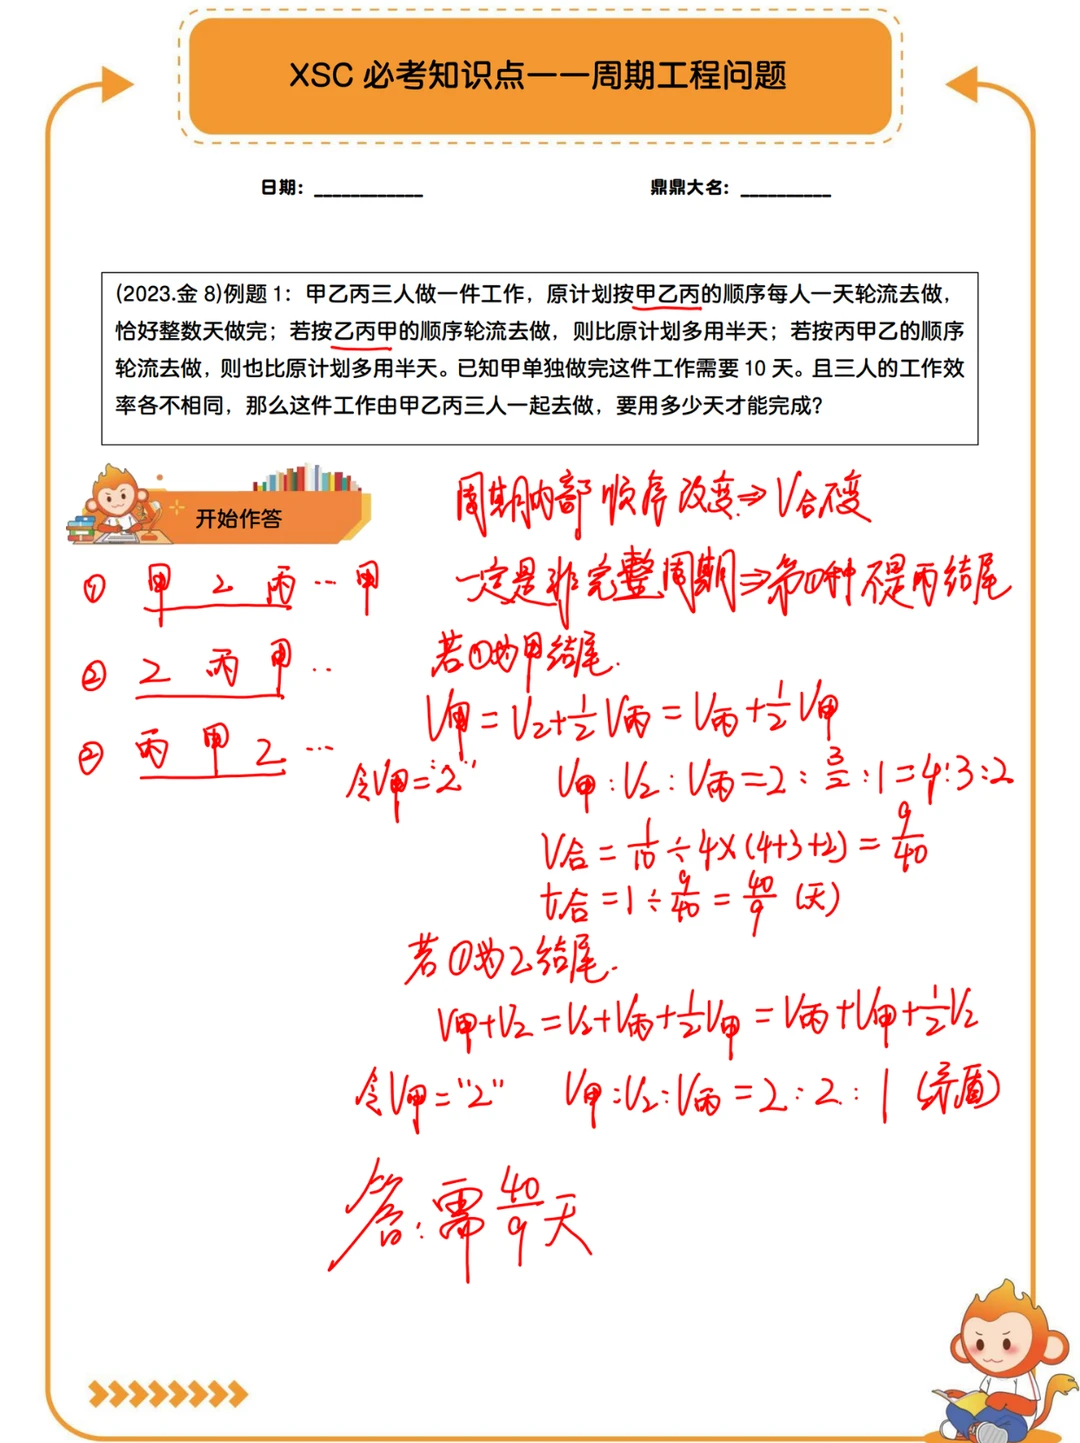 XSC 必考知识点——周期工程问题
日期：____________ 鼎鼎大名：__________
(2023.金 8)例题 1：甲乙丙三人做一件工作，原计划按甲乙丙的顺序每人一天轮流去做，
恰好整数天做完；若按乙丙甲的顺序轮流去做，则比原计划多用半天；若按丙甲乙的顺序
轮流去做，则也比原计划多用半天。已知甲单独做完这件工作需要 10 天。且三人的工作效
率各不相同，那么这件工作由甲乙丙三人一起去做，要用多少天才能完成？
开始作答
周期内部顺序改变⇒V合不变
① 甲 乙 丙 … 甲
一定是非完整周期⇒第①种不是丙结尾
② 乙 丙 甲 …
若①为甲结尾.
V甲=V乙+½V丙=V丙+½V甲
③ 丙 甲 乙 …
令V甲="2" V甲:V乙:V丙=2:3/2:1=4:3:2
V合=1/10÷4×(4+3+2)=9/40
t合=1÷9/40=40/9 (天)
若①为乙结尾.
V甲+V乙=V乙+V丙+½V甲=V丙+V甲+½V乙
令V甲="2" V甲:V乙:V丙=2:2:1 (矛盾)
答:需40/9天